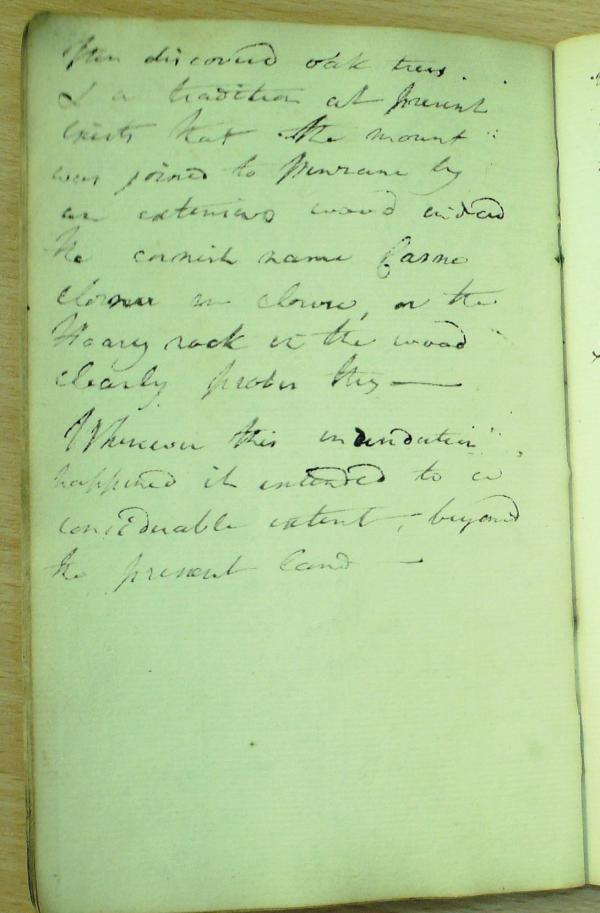 often discovered oak trees.
& a tradition at present
exists that the mount
was joined to Penzance by
an extensive wood indeed
the cornish name Carne
clowse in clowse, or the
Hoary rock in the wood
clearly proves this —
Wherever this inundation
happened it extended to a
considerable extent, beyond
the present land —